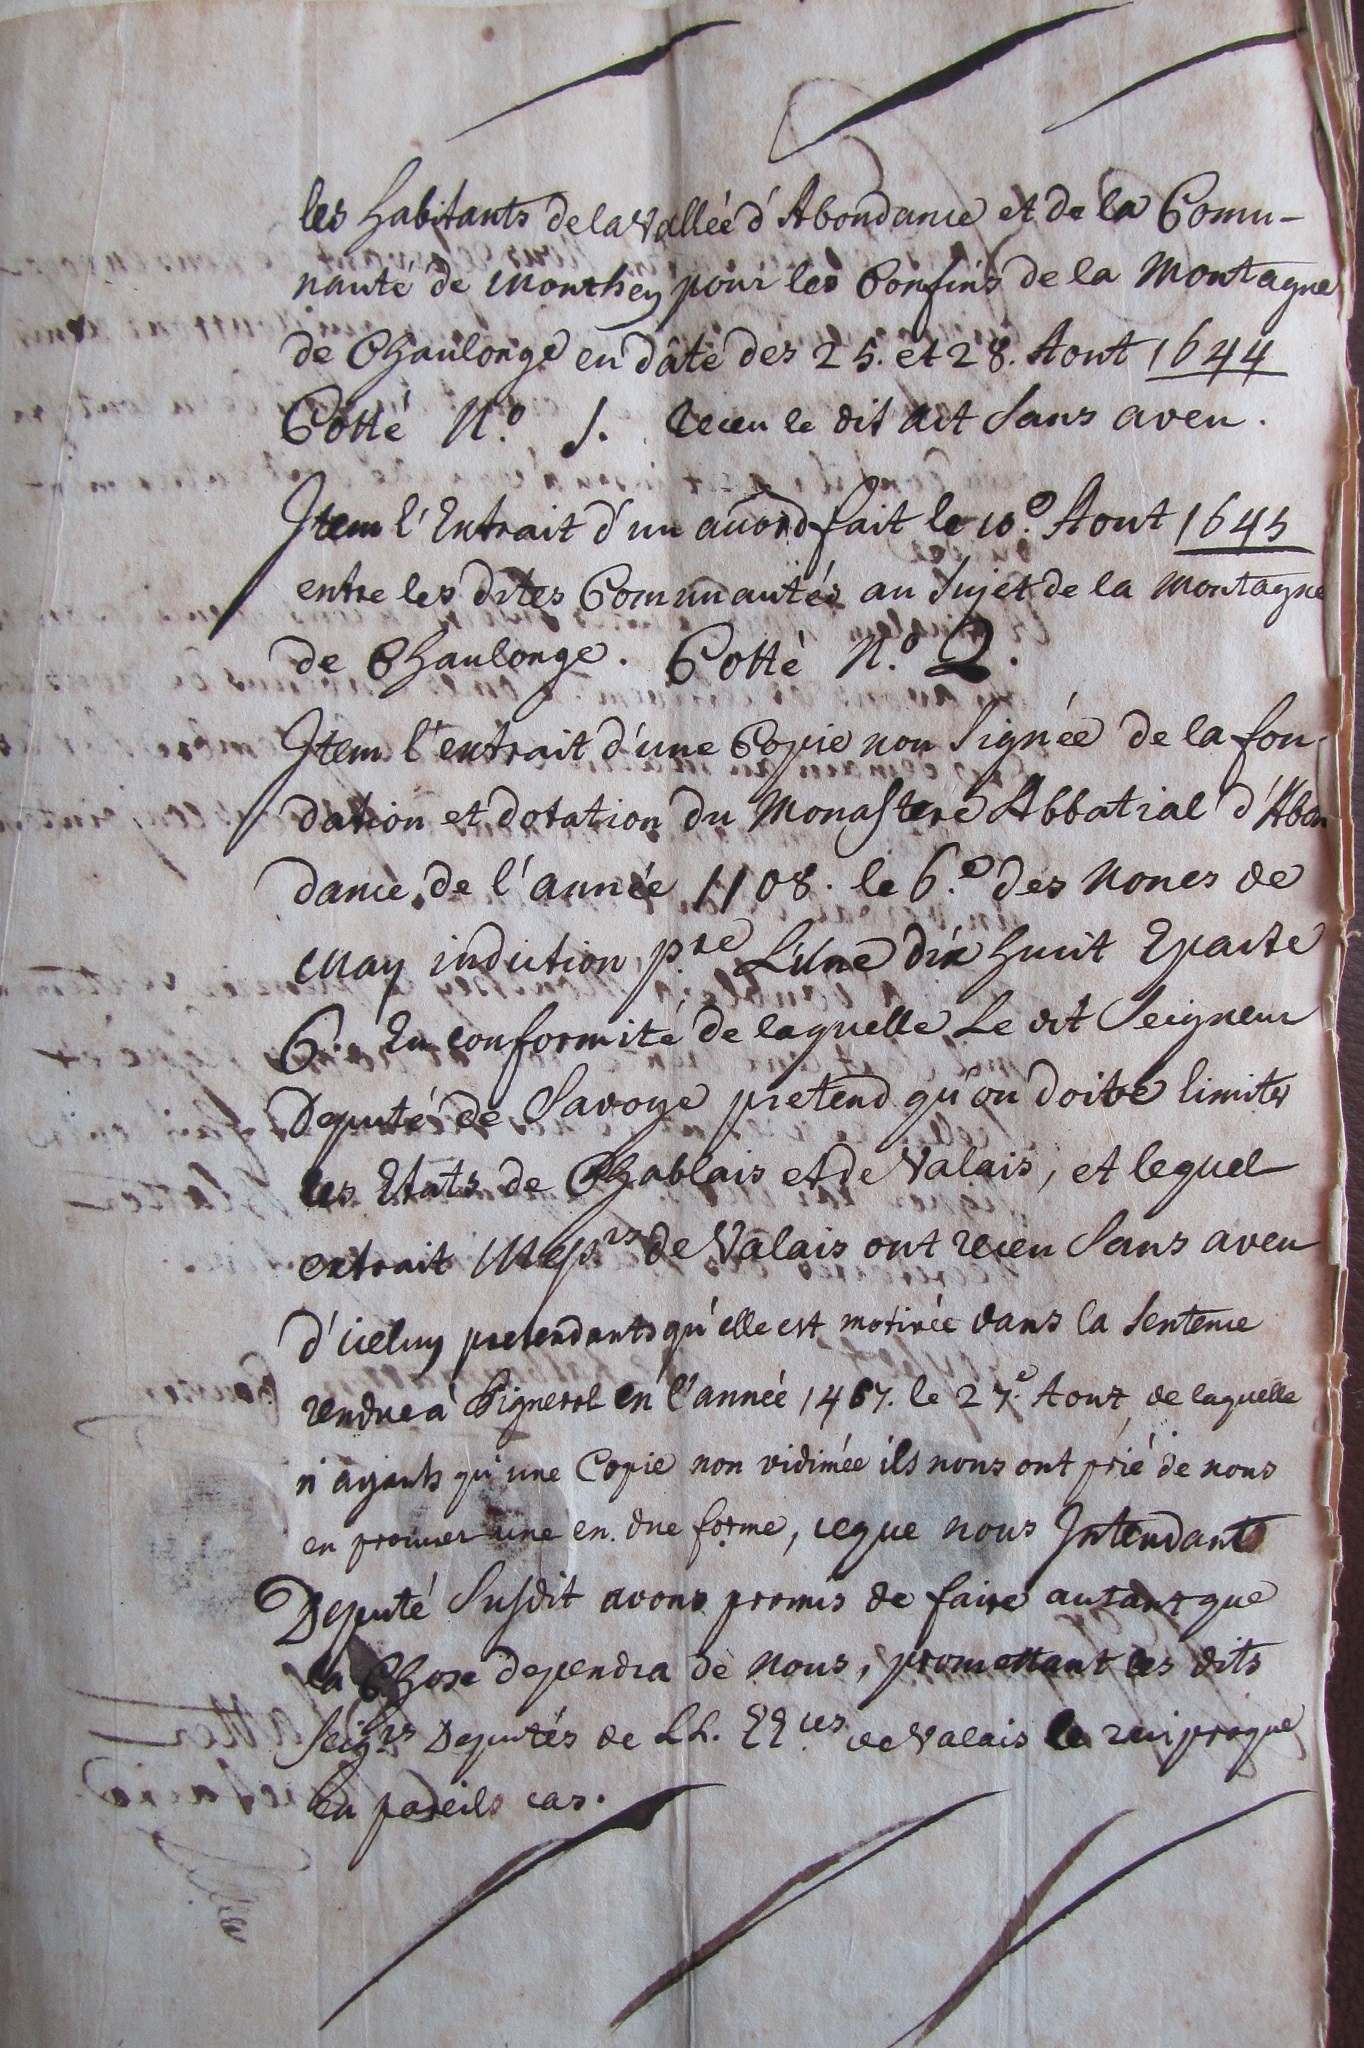 les habitants de la Vallée d'Abondance et de la Comu-
nauté de Monthey pour les Confins de la Montagne
de Chaulonge en dâte des 25. et 28. Aout 1644
Cotté N.o 1. receu le dit act Sans aveu.
Item l'Extrait d'un accord fait le 10.e Aout 1645
entre les dites Communautés au Sujet de la Montagne
de Chaulonge. Cotté N.o 2.
Item l'extrait d'une Copie non Signée de la fon-
dation et dotation du Monastere Abbatial d'Abon
dance, de l'année 1108. le 6.e des Nones de
May indiction p.re Lune dix huit Epacte
6. En conformité de laquelle Le dit Seigneur
Deputé de Savoye pretend qu'on doive limiter
les Etats de Chablais et de Valais, et lequel
extrait Mess.rs de Valais ont receu Sans aveu
d'iceluy pretendants qu'elle est motivée dans la Sentence
rendue à Pignerol en l'année 1467. le 27.e Aout de laquelle
n'ayants qu'une Copie non vidimée ils nous ont prié de nous
en procurer une en due forme, ce que nous Intendant
Deputé Susdit avons promis de faire autant que
la Chose dependra de nous, promettant les dits
Seig.rs Deputés de LL. EE.ces de Valais le reciproque
en pareils cas.